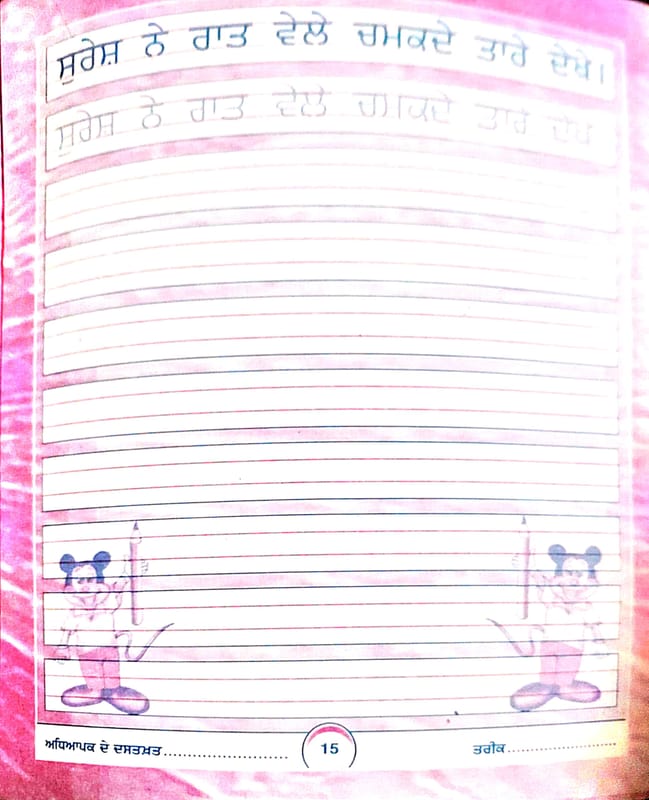 ਸੁਰੇਸ਼ ਨੇ ਰਾਤ ਵੇਲੇ ਚਮਕਦੇ ਤਾਰੇ ਦੇਖੇ।
ਸੁਰੇਸ਼ ਨੇ ਰਾਤ ਵੇਲੇ ਚਮਕਦੇ ਤਾਰੇ ਦੇਖੇ
ਅਧਿਆਪਕ ਦੇ ਦਸਤਖ਼ਤ........................ 15 ਤਰੀਕ........................